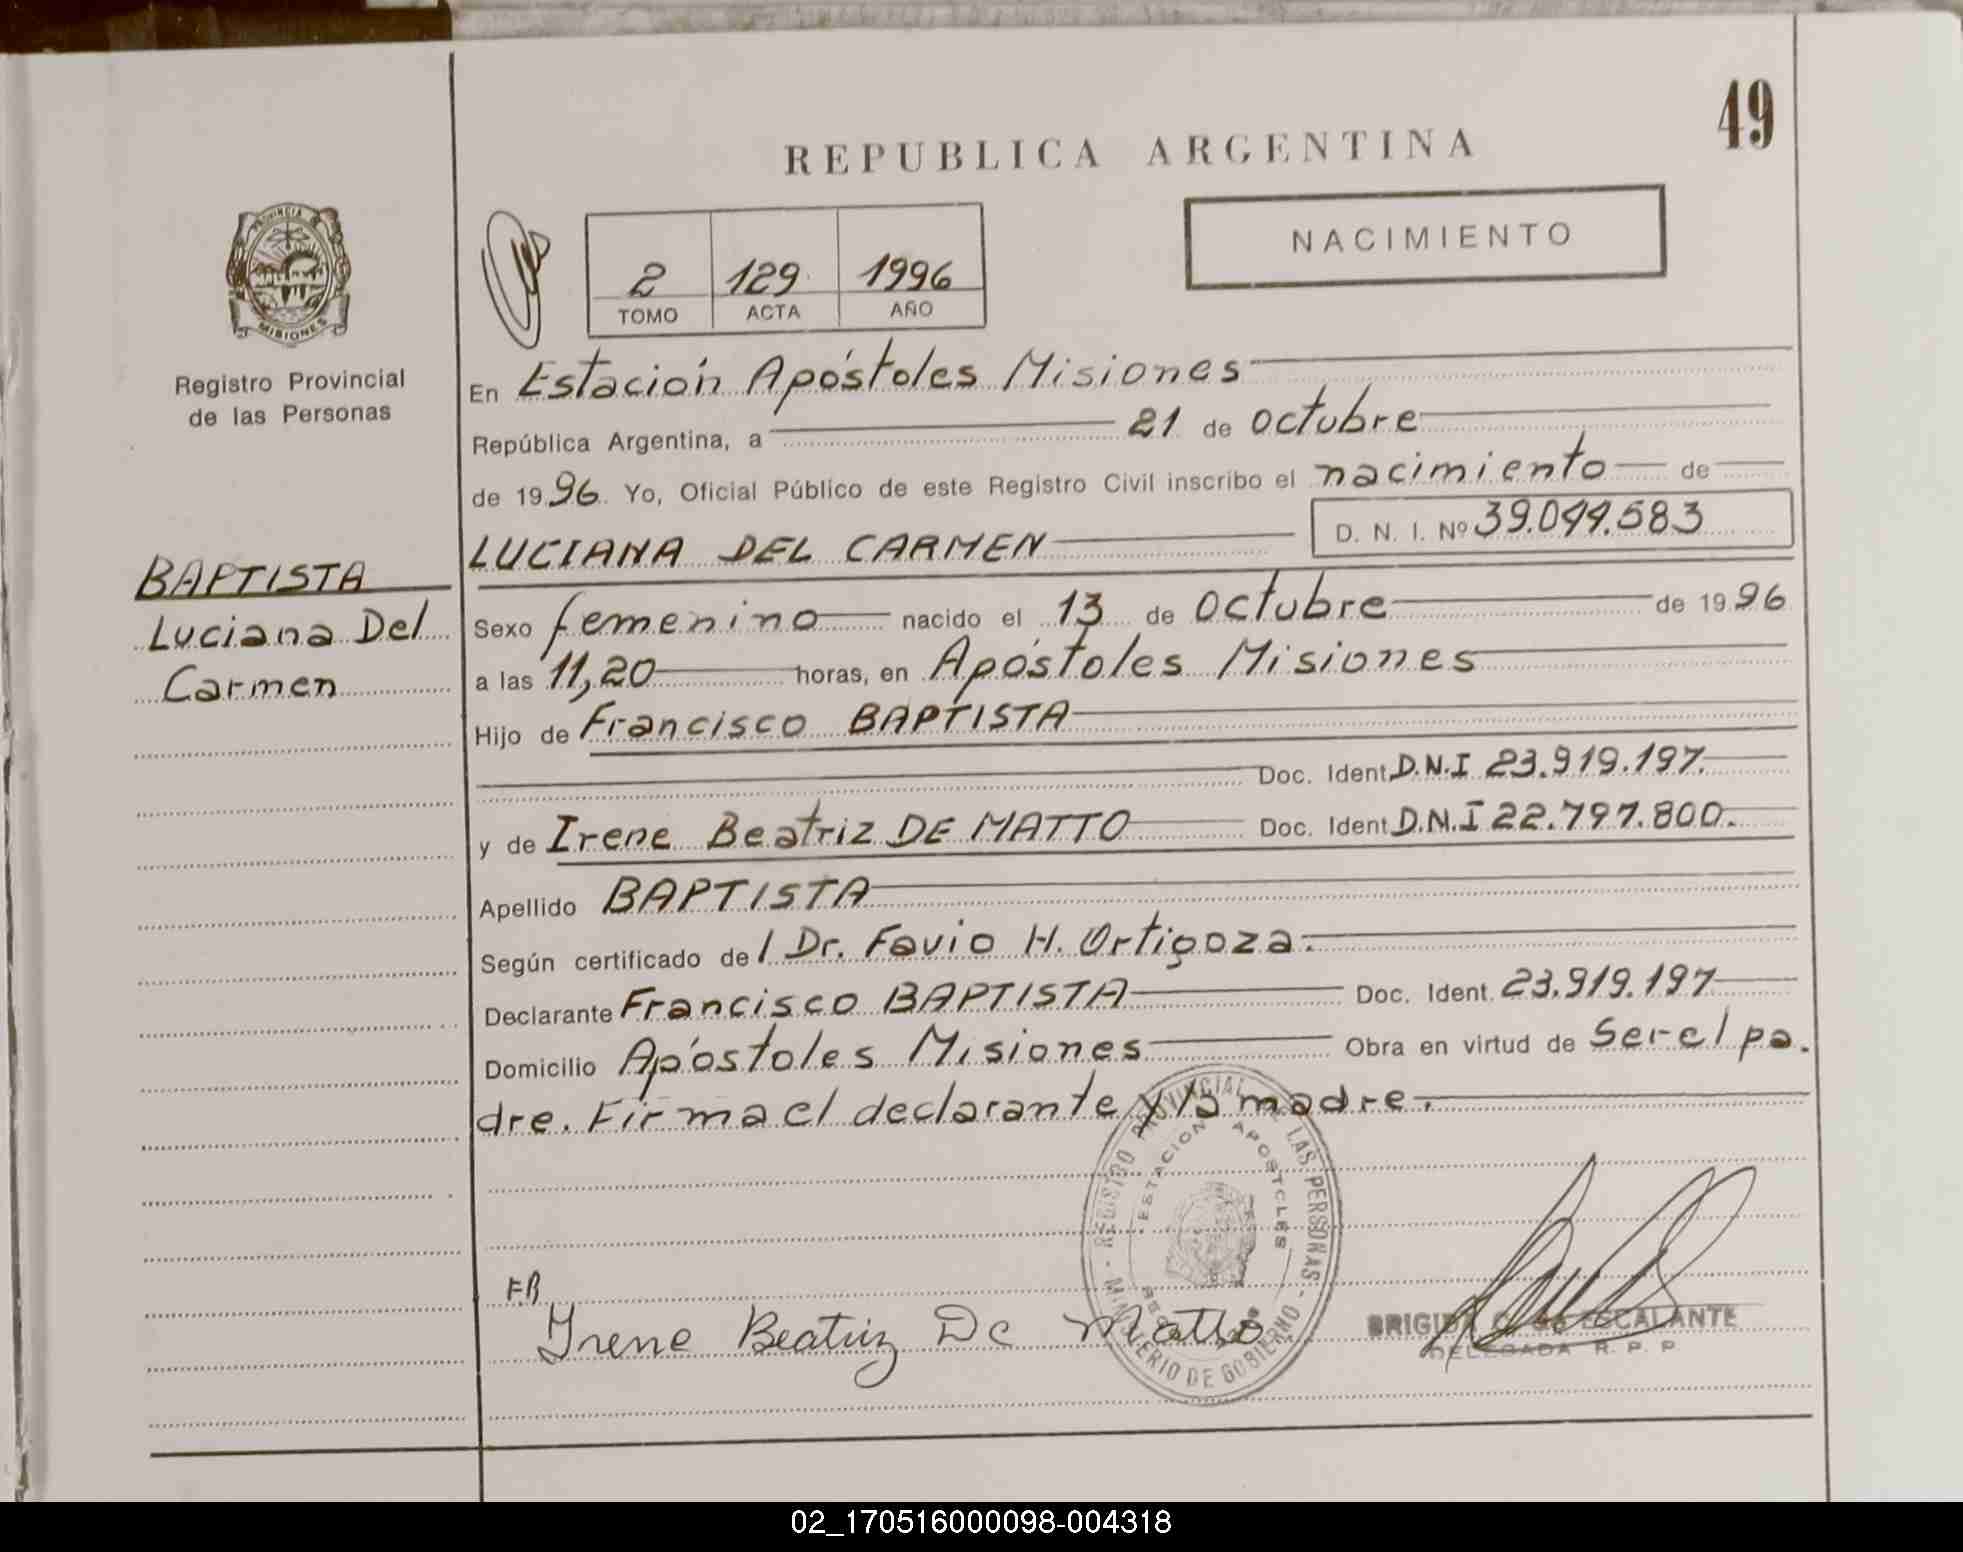 49
REPUBLICA ARGENTINA
NACIMIENTO
PROVINCIA
MISIONES
Registro Provincial
de las Personas
2 129 1996
TOMO ACTA AÑO
En Estación Apóstoles Misiones
República Argentina, a 21 de octubre
de 1996. Yo, Oficial Público de este Registro Civil inscribo el nacimiento de
LUCIANA DEL CARMEN D. N. I. Nº 39.044.583
BAPTISTA
Luciana Del
Carmen
Sexo femenino nacido el 13 de octubre de 1996
a las 11,20 horas, en Apóstoles Misiones
Hijo de Francisco BAPTISTA
Doc. Ident. D.N.I 23.919.197.
y de Irene Beatriz DE MATTO Doc. Ident. D.N.I 22.797.800.
Apellido BAPTISTA
Según certificado del Dr. Favio H. Ortigoza.
Declarante Francisco BAPTISTA Doc. Ident. 23.919.197
Domicilio Apóstoles Misiones Obra en virtud de Ser el pa.
dre. Firma el declarante y la madre.
REGISTRO PROVINCIAL DE LAS PERSONAS - MINISTERIO DE GOBIERNO
ESTACION APOSTOLES
F.B
Irene Beatriz De Matto
BRIGIDA ESCALANTE
DELEGADA R. P. P.
02_170516000098-004318